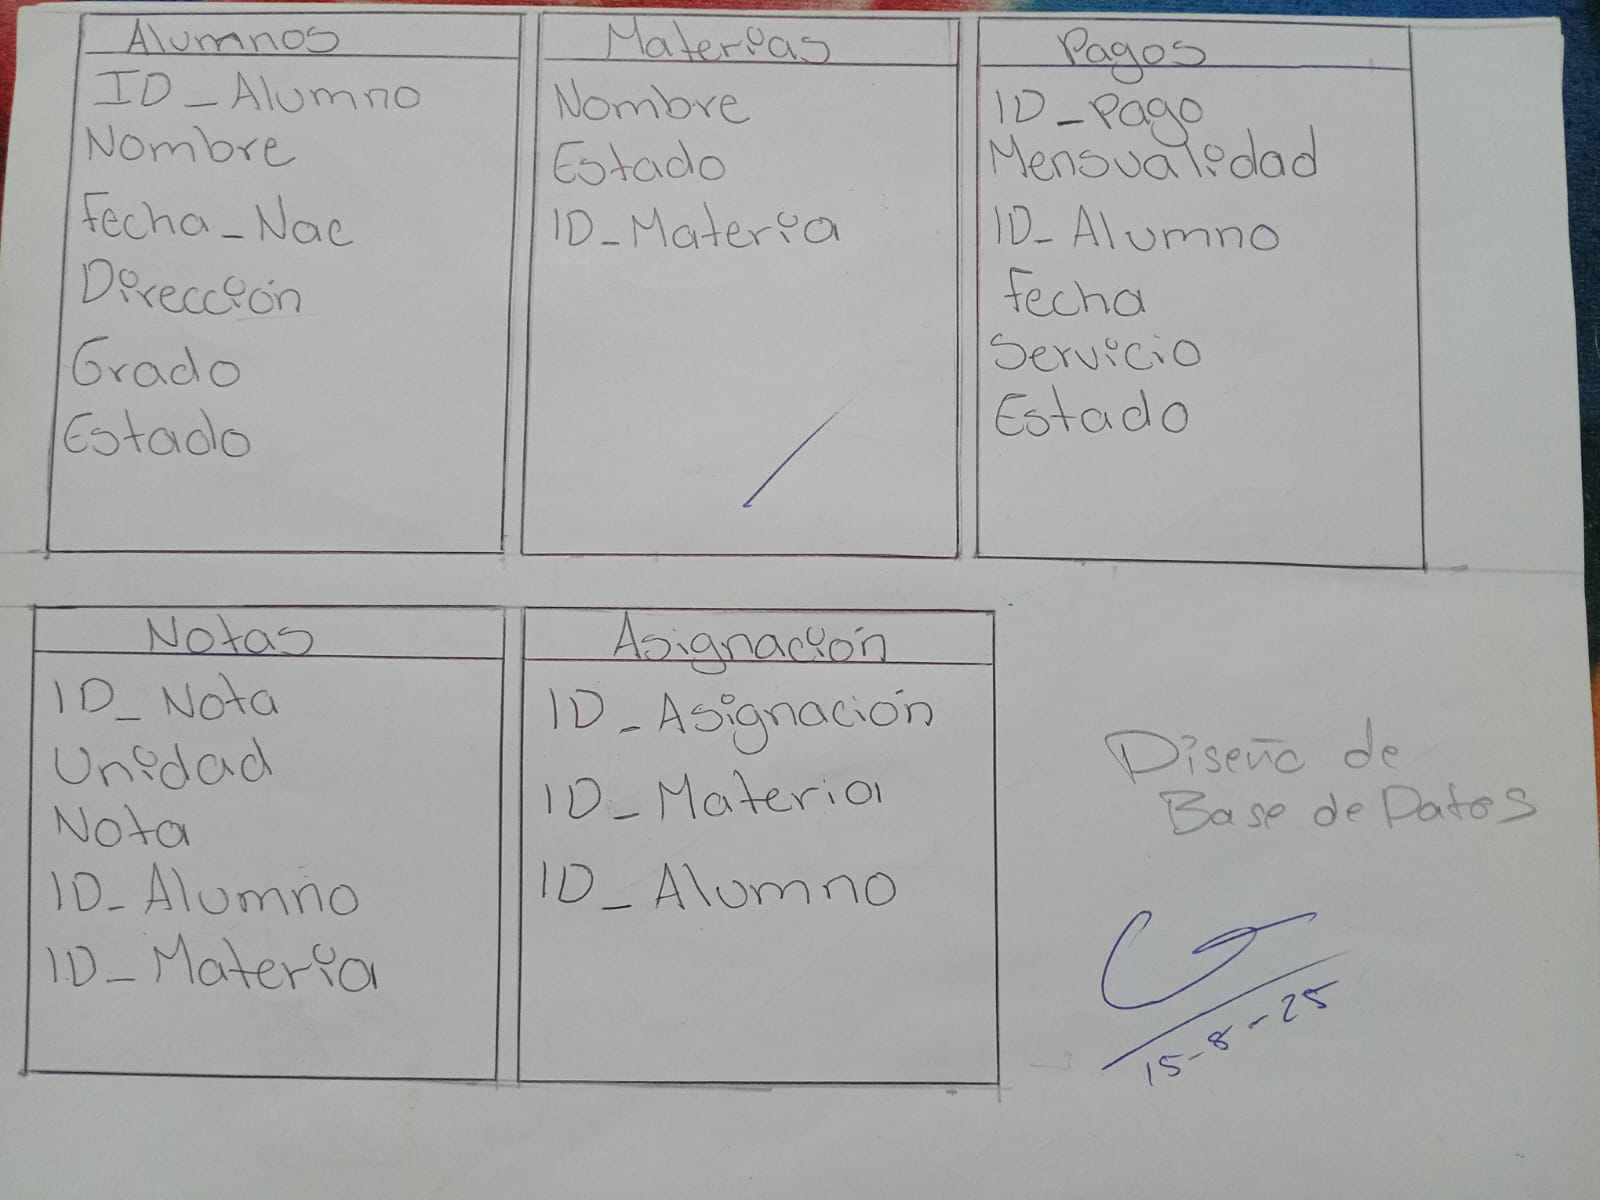 Alumnos
ID_Alumno
Nombre
Fecha_Nac
Dirección
Grado
Estado
Materias
Nombre
Estado
ID_Materia
Pagos
ID_Pago
Mensualidad
ID_Alumno
Fecha
Servicio
Estado
Notas
ID_Nota
Unidad
Nota
ID_Alumno
ID_Materia
Asignación
ID_Asignación
ID_Materia
ID_Alumno
Diseño de
Base de Datos
15-8-25